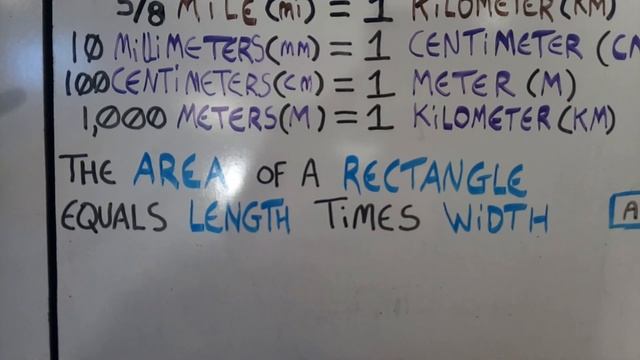 5/8 MiLE (mi) = 1 KiLOMETER (KM)
10 MilliMETERS (mm) = 1 CENTiMETER (CM
100 CENTiMETERS (cm) = 1 METER (M)
1,000 METERS (M) = 1 KiLOMETER (KM)
THE AREA OF A RECTANGLE
EQUALS LENGTH TiMES WiDTH
A